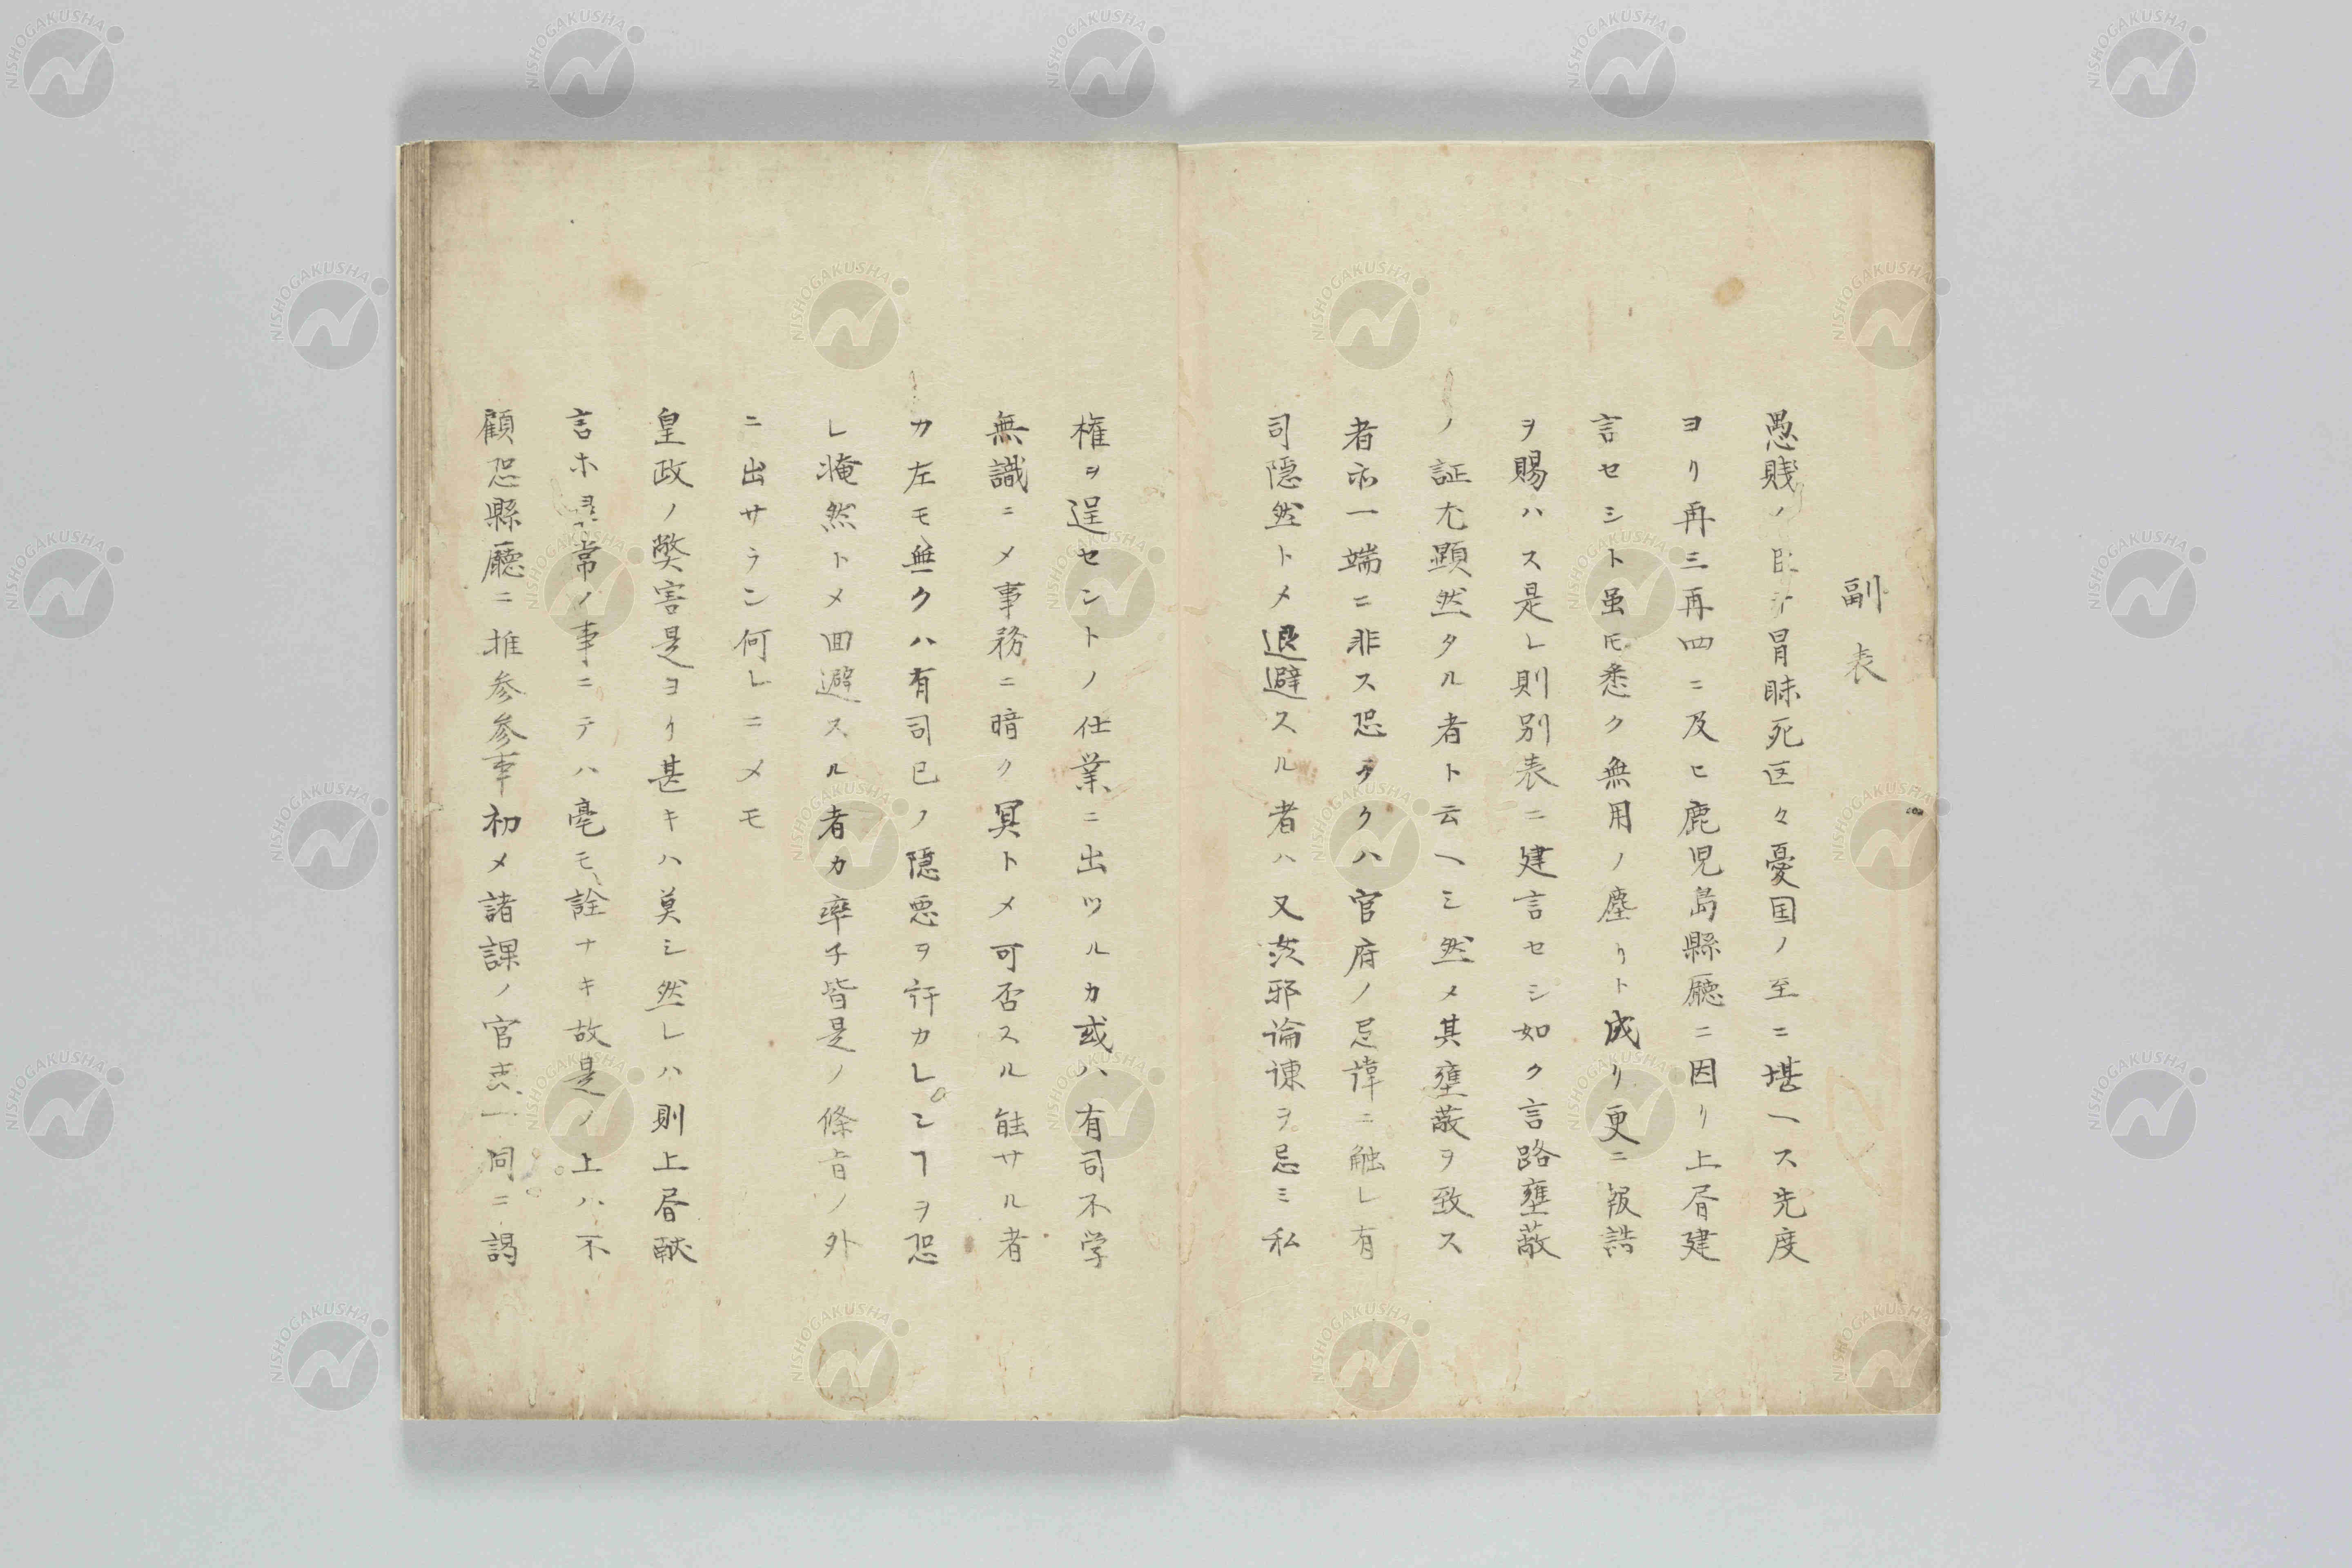 副表
愚賎ノ臣冒昧死区々憂国ノ至ニ堪ヘス先度
ヨリ再三再四ニ及ヒ鹿児島縣廳ニ因リ上省建
言セシト虽𪜈悉ク無用ノ塵リト成リ更ニ報誥
ヲ賜ハス是レ則別表ニ建言セシ如ク言路壅蔽
ノ証尤顕然タル者ト云ヘシ然メ其壅蔽ヲ致ス
者亦一端ニ非ス恐ラクハ官府ノ忌諱ニ触レ有
司隠然トメ退避スル者ハ又渋邪論諌ヲ忌ミ私
権ヲ逞セントノ仕業ニ出ツルカ或ハ有司不学
無識ニメ事務ニ暗ク冥トメ可否スル能サル者
カ左モ無クハ有司已ノ隠悪ヲ訐カレンヿヲ恐
レ淹然トメ回避スル者カ率子皆是ノ條旨ノ外
ニ出サラン何レニメモ
皇政ノ弊害是ヨリ甚キハ莫シ然レハ則上省献
言ホ尋常ノ事ニテハ毫モ詮ナキ故是ノ上ハ不
顧恐縣廳ニ推参参事初メ諸課ノ官吏一同ニ謁
NISHOGAKUSHA